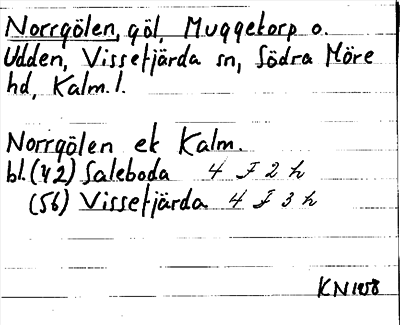 Norrgölen, göl, Muggetorp o.
Udden, Vissefjärda sn, Södra Möre
hd, Kalm. l.
Norrgölen ek Kalm.
bl. (42) Saleboda 4 F 2 h
(56) Vissefjärda 4 F 3 h
KN 1958